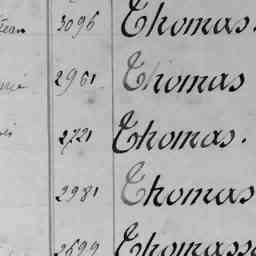 3096 Thomas.
2961 Thomas
2721 Thomas.
2981 Thomas
2699 Thomass